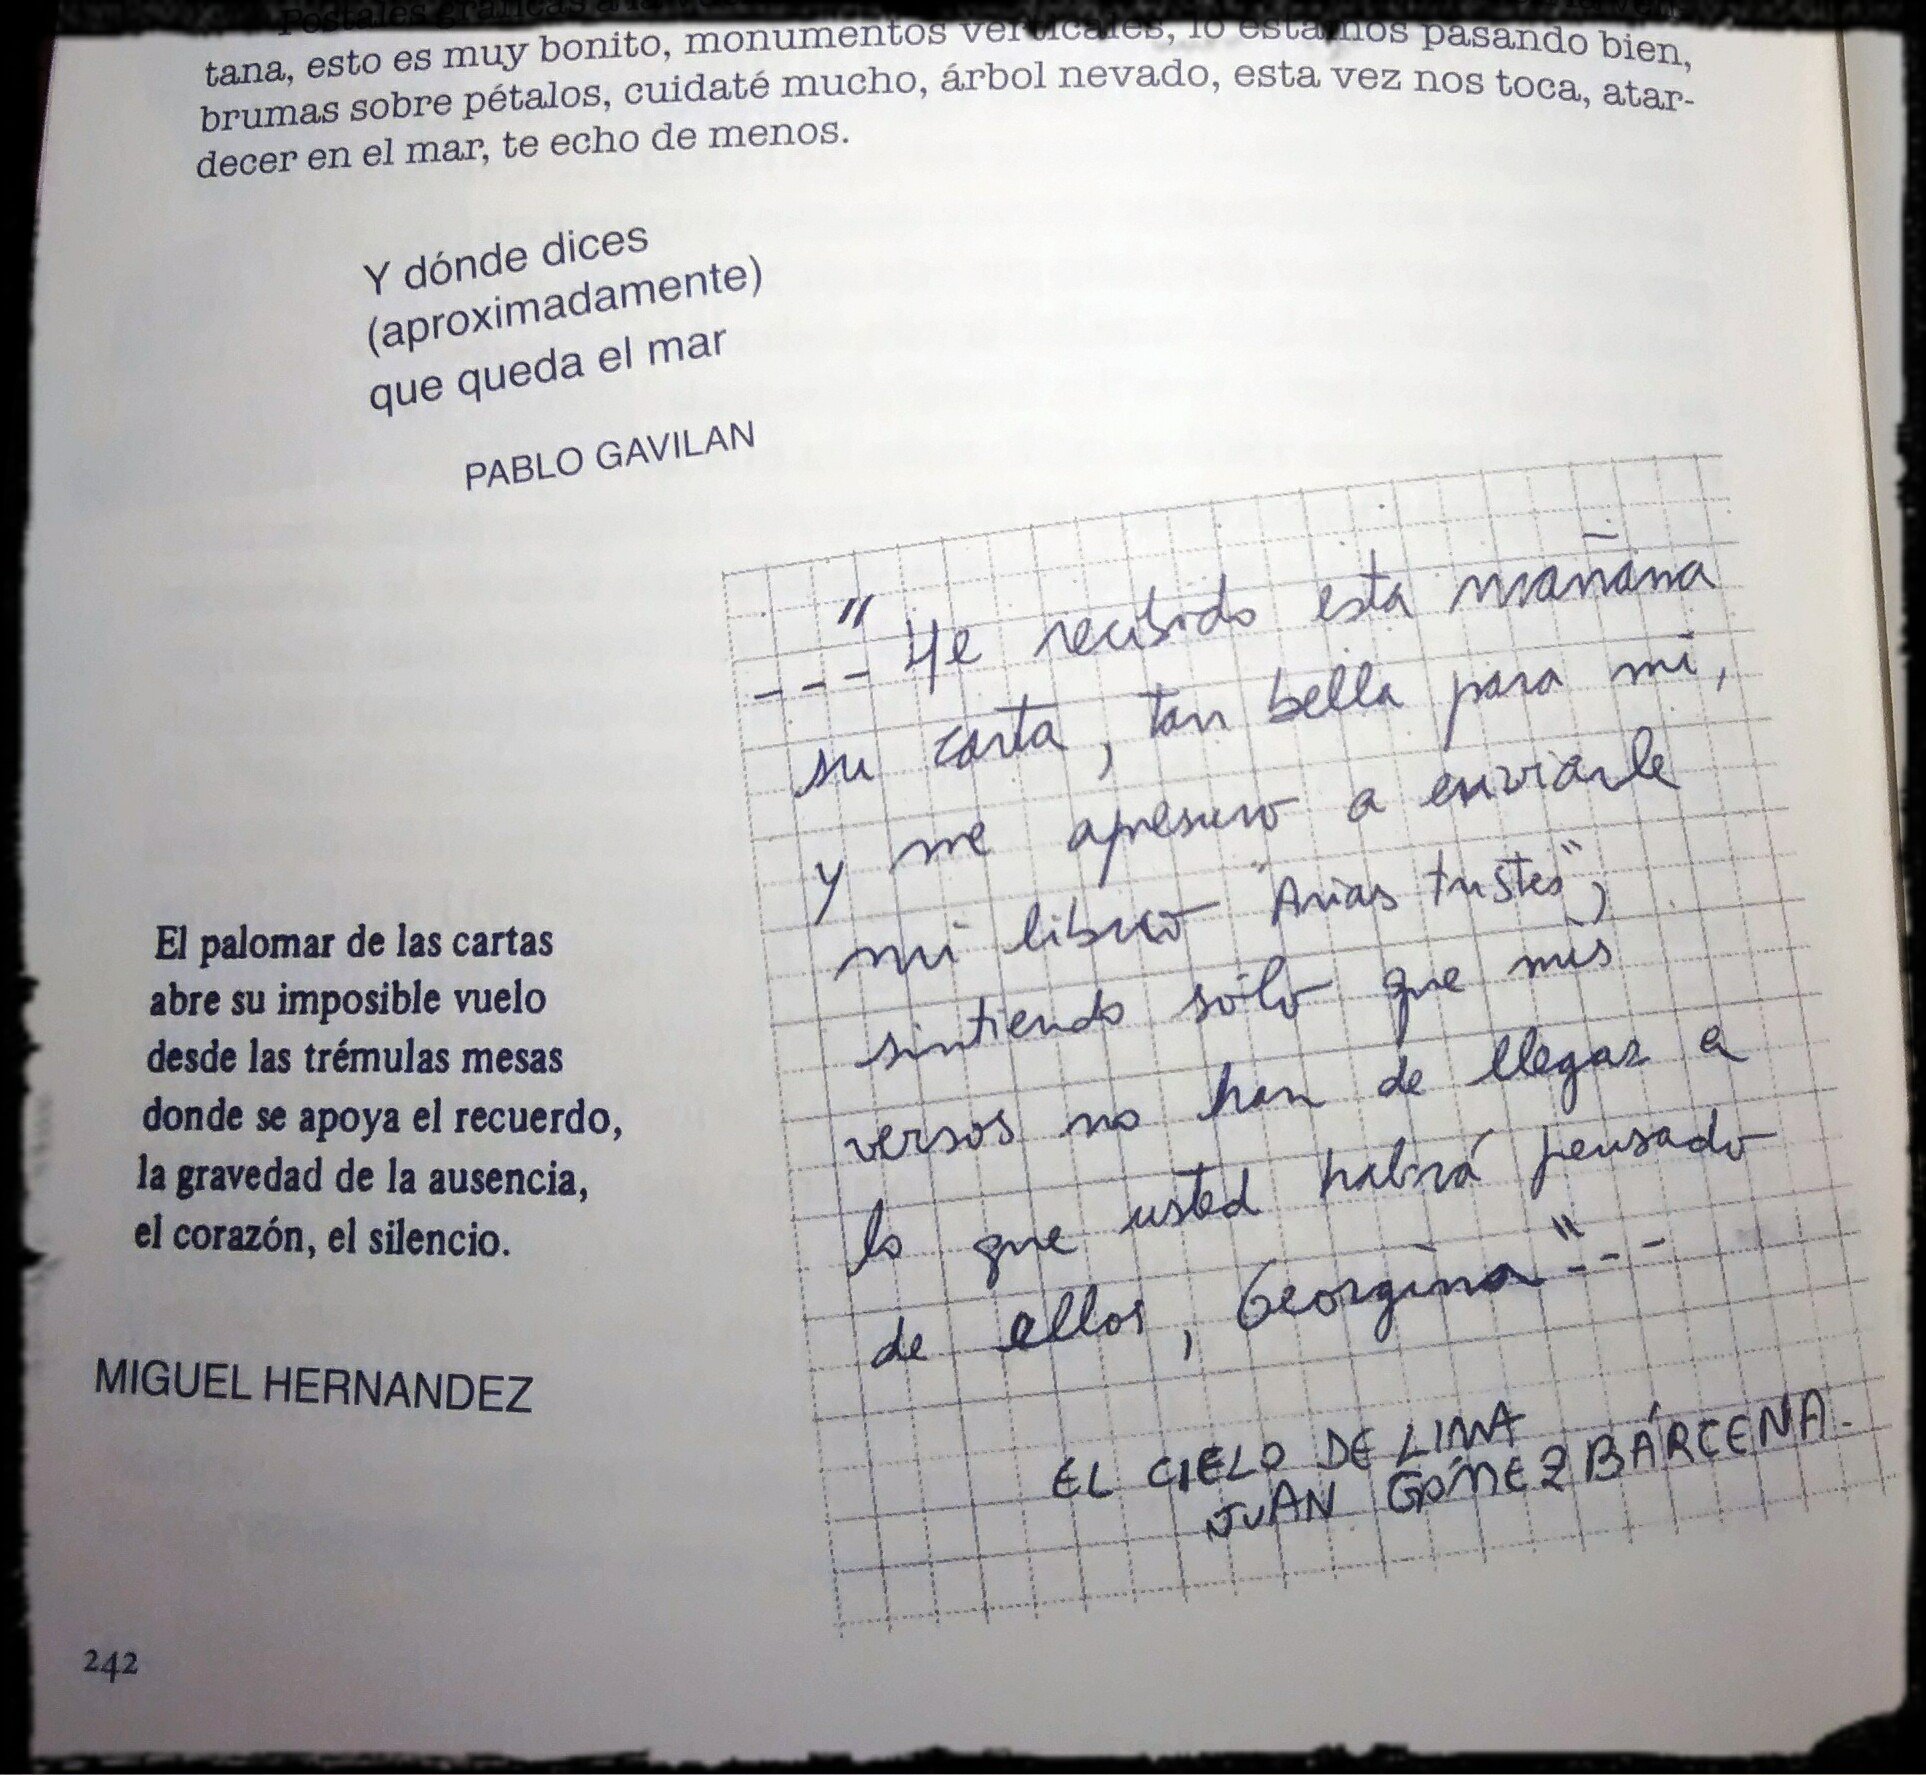 Postales gráficas a la
tana, esto es muy bonito, monumentos verticales, lo estamos pasando bien,
brumas sobre pétalos, cuidaté mucho, árbol nevado, esta vez nos toca, atar-
decer en el mar, te echo de menos.
Y dónde dices
(aproximadamente)
que queda el mar
PABLO GAVILAN
El palomar de las cartas
abre su imposible vuelo
desde las trémulas mesas
donde se apoya el recuerdo,
la gravedad de la ausencia,
el corazón, el silencio.
MIGUEL HERNANDEZ
--- "He recibido esta mañana
su carta, tan bella para mí,
y me apresuro a enviarle
mi libro "Arias tristes",
sintiendo sólo que mis
versos no han de llegar a
lo que usted habrá pensado
de ellos, Georgina" ---
EL CIELO DE LIMA
JUAN GÓMEZ BÁRCENA.
242